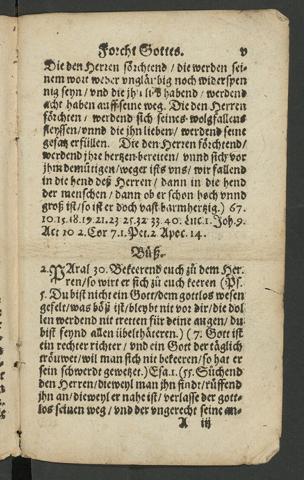 Forcht Gottes. v
Die den Herren förchtend / die werden sei-
nem wort weder vngläubig noch widerspen
nig seyn / vnd die jhn lieb habend / werdend
acht haben auff seine weg. Die den Herren
förchten / werdend sich seines wolgfallens
fleyssen / vnnd die jhn lieben / werdend seine
gesatz erfüllen. Die den Herren förchtend /
werdend jhre hertzen bereiten / vnnd sich vor
jhm demütigen / weger ists vns / wir fallend
in die hend deß Herren / dann in die hend
der menschen / dann ob er schon hoch vnnd
groß ist / so ist er doch vast barmhertzig.) 67.
10.15.18.19.21.23 25.32 33.40. Luc.1. Joh.9.
Act 10 2.Cor 7.1.Pet.2 Apoc.14.
Büß.
2. PAral 30. Bekeerend euch zů dem Her-
ren / so wirt er sich zů euch keeren (Ps.
5. Du bist nicht ein Gott / dem gottlos wesen
gefelt / was böß ist / bleybt nit vor dir / die dol
len werdend nit tretten für deine augen / du
bist feynd allen übelthäteren.) (7. Gott ist
ein rechter richter / vnd ein Gott der täglich
tröuwet / wil man sich nit bekeeren / so hat er
sein schwerdt gewetzet.) Esa.1. (55. Süchend
den Herren / dieweyl man jhn findt / rüffend
jhn an / dieweyl er nahe ist / verlasse der gott-
los seinen weg / vnd der vngerecht seine an-
A iij